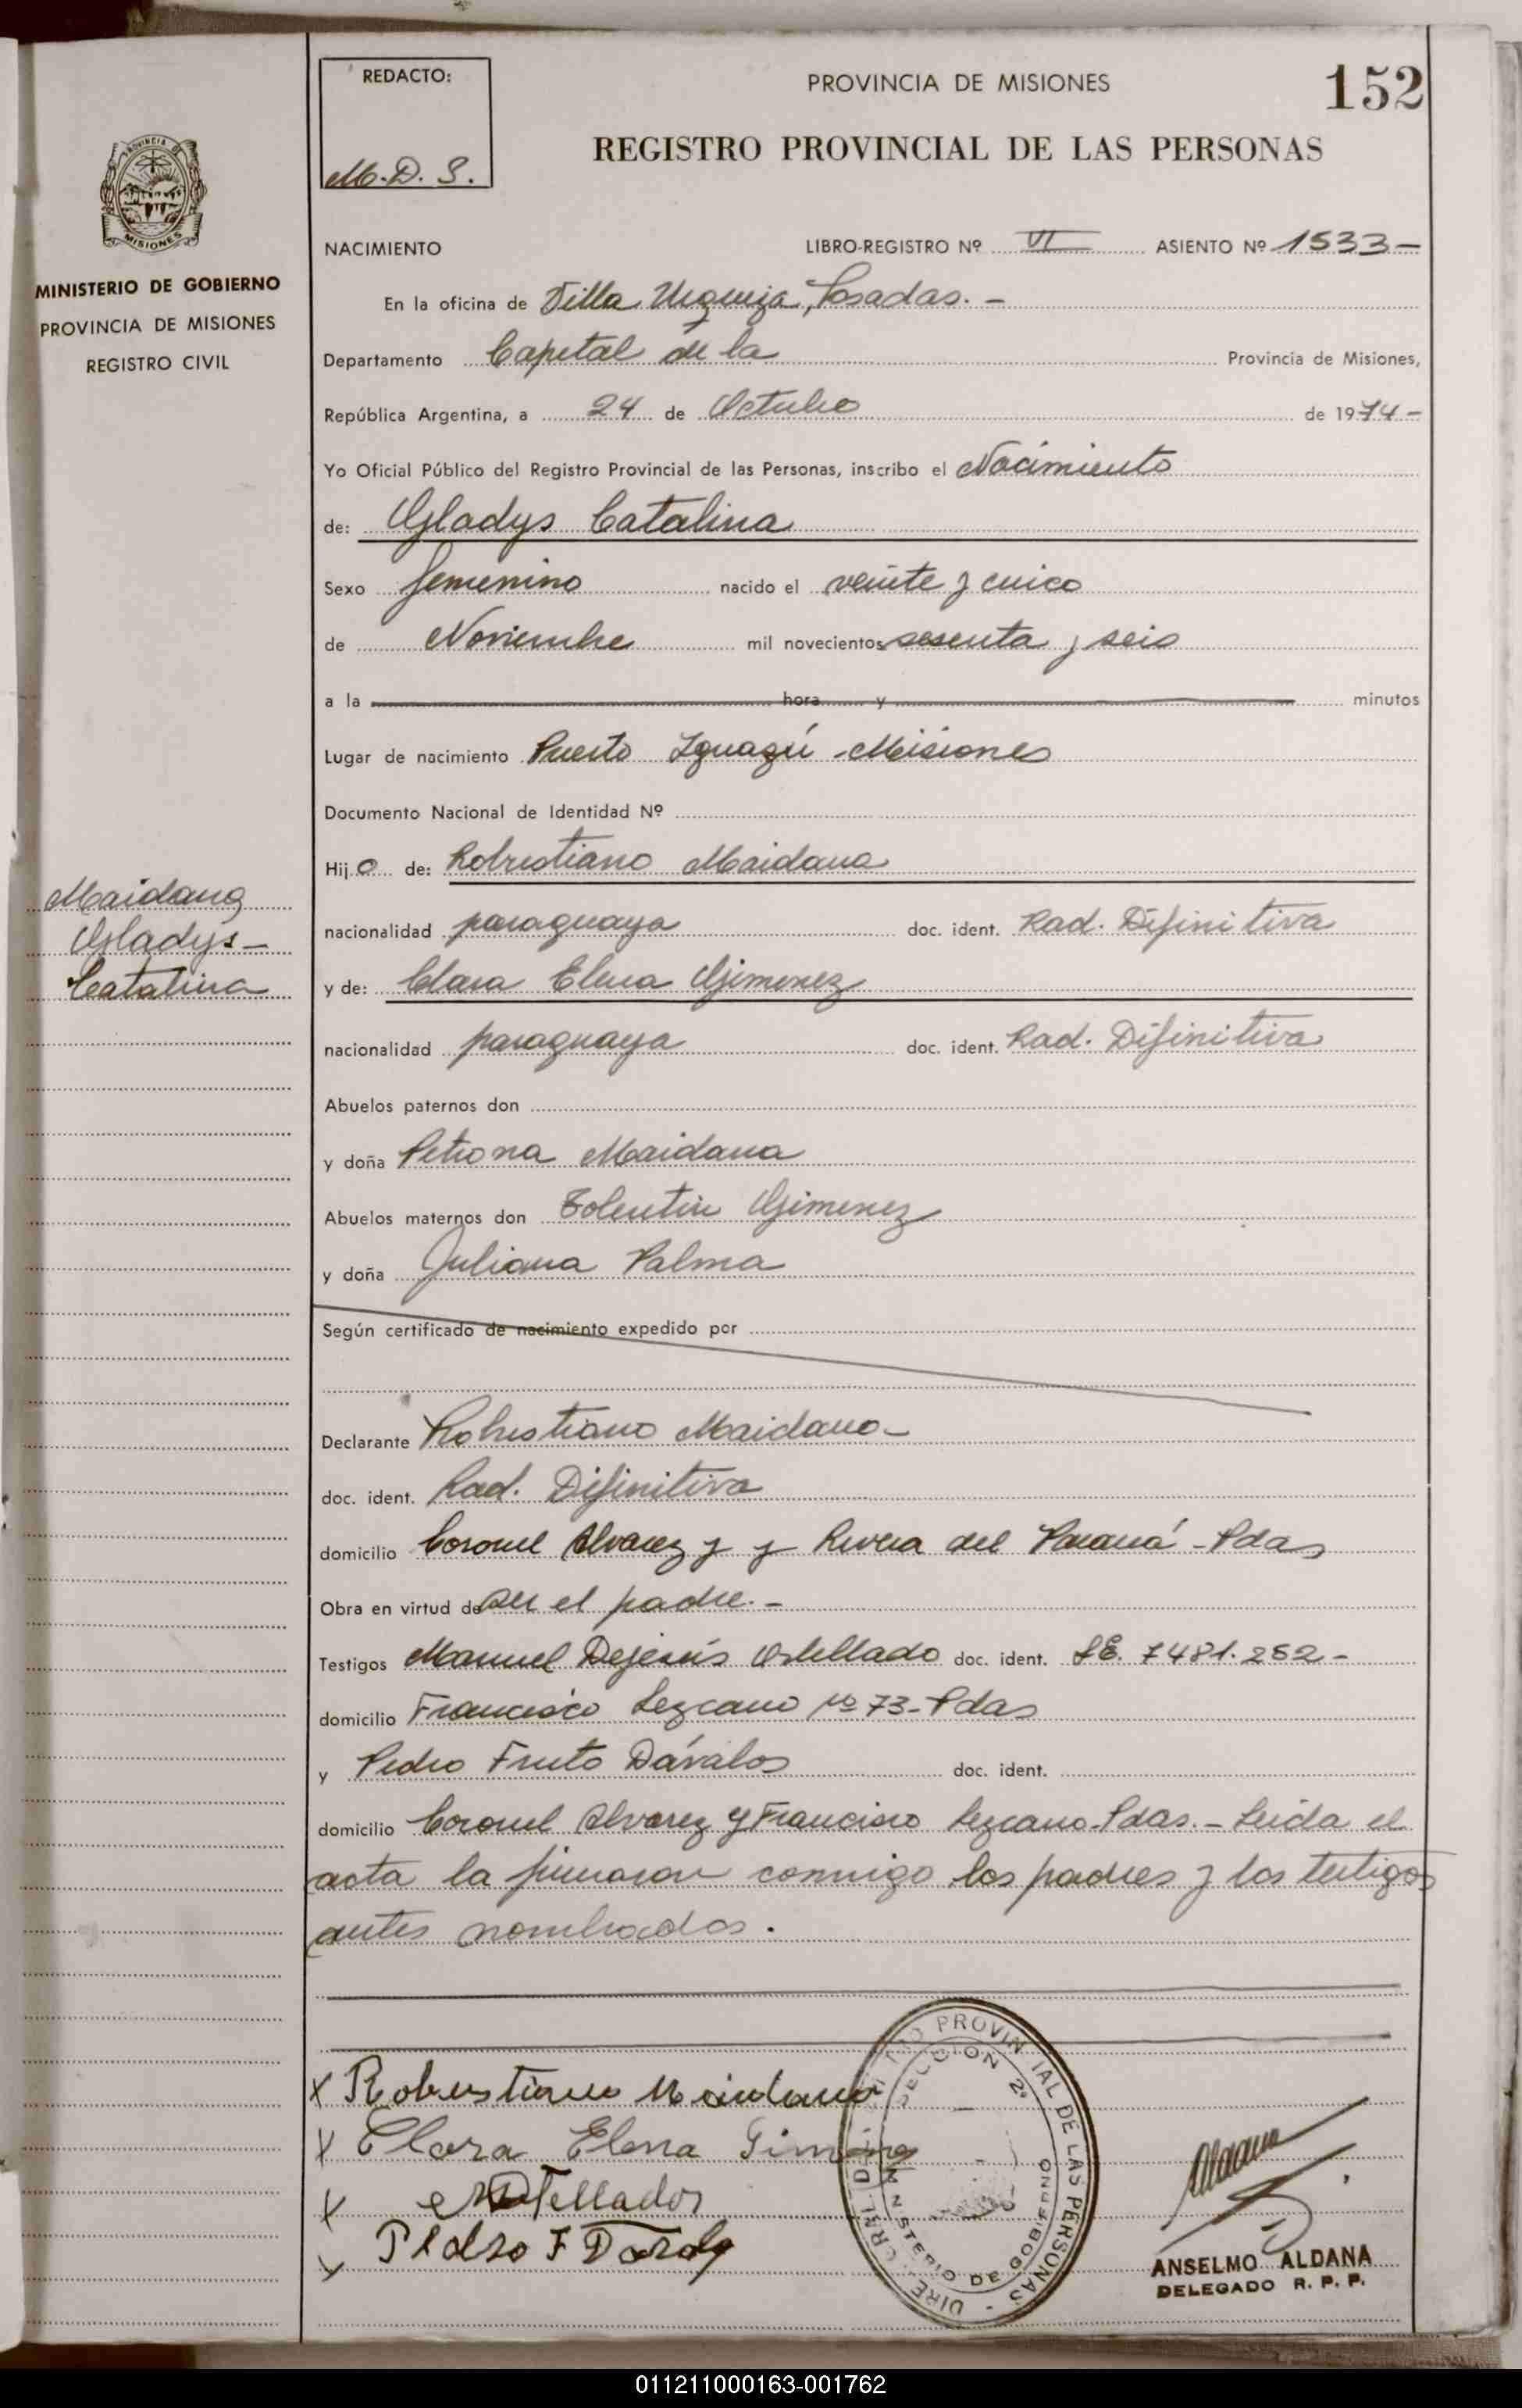 REDACTO:
M. D. S.
PROVINCIA DE MISIONES
152
REGISTRO PROVINCIAL DE LAS PERSONAS
PROVINCIA DE
MISIONES
MINISTERIO DE GOBIERNO
PROVINCIA DE MISIONES
REGISTRO CIVIL
NACIMIENTO LIBRO-REGISTRO Nº VI ASIENTO Nº 1533-
En la oficina de Villa Urquiza, Posadas. -
Departamento Capital de la Provincia de Misiones,
República Argentina, a 24 de Octubre de 1974-
Yo Oficial Público del Registro Provincial de las Personas, inscribo el Nacimiento
de: Gladys Catalina
Sexo femenino nacido el veinte y cinco
de Noviembre mil novecientos sesenta y seis
a la hora y minutos
Lugar de nacimiento Puerto Iguazú - Misiones
Documento Nacional de Identidad Nº
Hijo de: Robustiano Maidana
Maidana
Gladys-
Catalina
nacionalidad paraguaya doc. ident. Rad. Difinitiva
y de: Clara Elena Gimenez
nacionalidad paraguaya doc. ident. Rad. Difinitiva
Abuelos paternos don
y doña Petrona Maidana
Abuelos maternos don Tolentin Gimenez
y doña Juliana Palma
Según certificado de nacimiento expedido por
Declarante Robustiano Maidana-
doc. ident. Rad. Difinitiva
domicilio Coronel Alvarez y y Rivera del Paraná - Pdas
Obra en virtud de ser el padre. -
Testigos Manuel Dejesús doc. ident. L.E. 7481.252-
domicilio Francisco Lezcano Nº 73-Pdas
y Pedro Fruto Dávalos doc. ident.
domicilio Coronel Alvarez y Francisco Lezcano-Pdas. - Leida el
acta la firmaron conmigo los padres y los testigos
antes nombrados.
x Robustiano Maidana
x Clara Elena Gimenez
x
x Pedro F
PROVINCIAL DE LAS PERSONAS
SECCION 2ª
MINISTERIO DE GOBIERNO
Aldana
ANSELMO ALDANA
DELEGADO R. P. P.
011211000163-001762